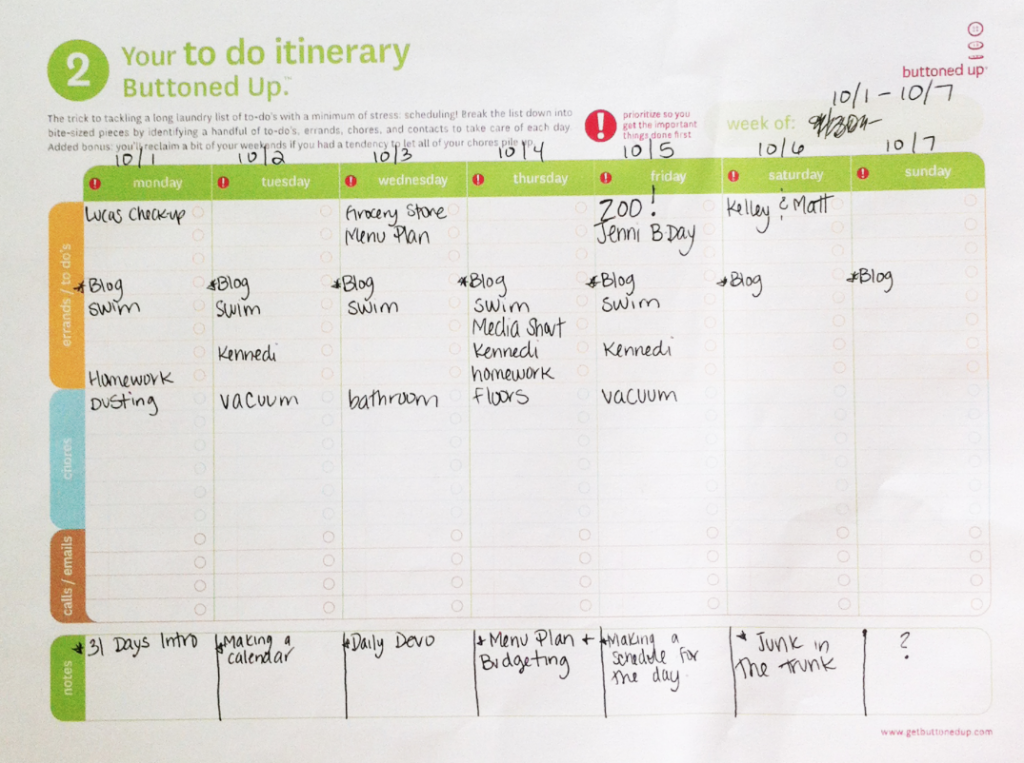 2
Your to do itinerary
Buttoned Up.™
buttoned up
The trick to tackling a long laundry list of to-do's with a minimum of stress: scheduling! Break the list down into
bite-sized pieces by identifying a handful of to-do's, errands, chores, and contacts to take care of each day.
Added bonus: you'll reclaim a bit of your weekends if you had a tendency to let all of your chores pile up.
! prioritize so you
get the important
things done first
10/1 - 10/7
week of:
10/1 10/2 10/3 10/4 10/5 10/6 10/7
! monday ! tuesday ! wednesday ! thursday ! friday ! saturday ! sunday
errands / to do's
Lucas Check-up Grocery Store ZOO! Kelley & Matt
Menu Plan Jenni B-Day
*Blog *Blog *Blog *Blog *Blog *Blog *Blog
Swim Swim Swim Swim Swim
Media Shout
Kennedi Kennedi Kennedi
Homework homework
chores
Dusting Vacuum bathroom Floors Vacuum
calls / emails
notes
*31 Days Intro *Making a *Daily Devo *Menu Plan + *Making a * Junk in ?
calendar Budgeting Schedule for The Trunk
the day.
www.getbuttonedup.com